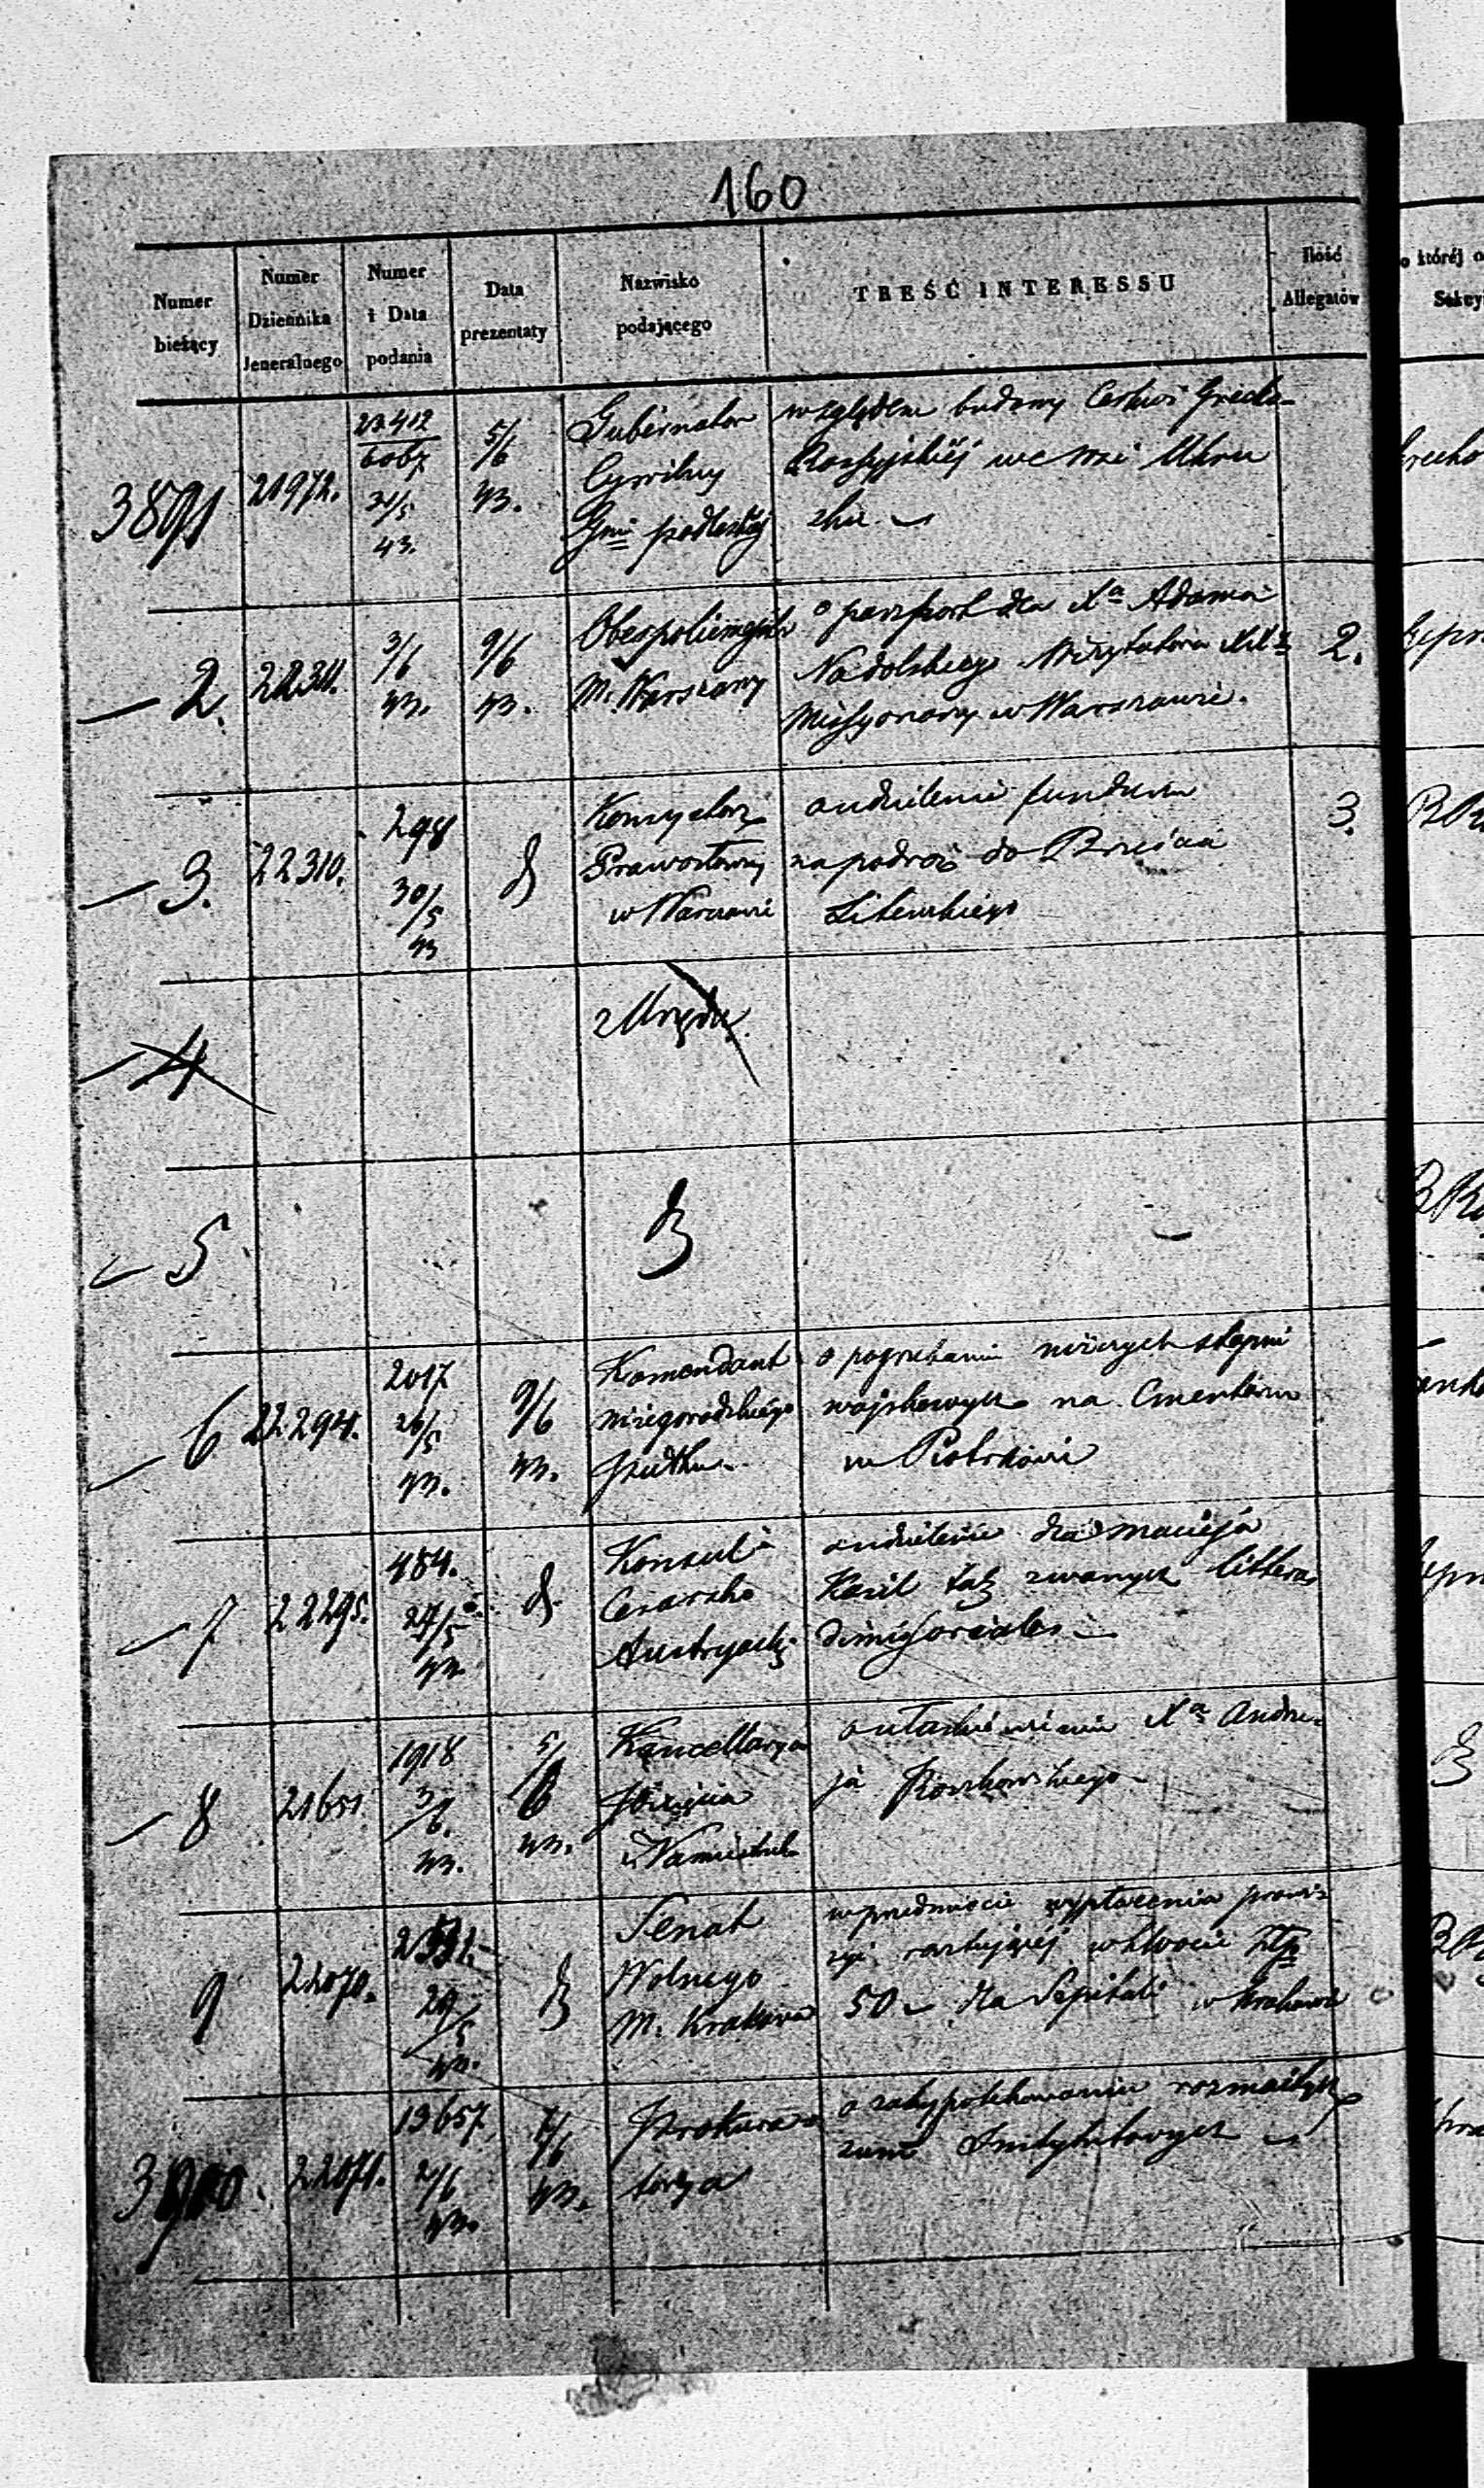 160
Numer bieżący
Numer Dziennika Jeneralnego
Numer i Data podania
Data prezentaty
Nazwisko podającego
TREŚĆ INTERESSU
Ilość Allegatów
o któréj
3891
21972.
6067
43.
5/6
43.
Gubernator
Cywilny
Gnii podleskiej
względem budowy Cerkwi Grecko
Rossyjskiéj we wsi
2.
3/6
43.
9/6
43.
M. Warszawy
o paszport dla Xa Adama
Nadolskiego Wizytatora XX
Missyonarzy w Warszawie.
2.
3.
22310.
298
30/5
43
w Warszawie
o udzielenie funduszu
na podroż do Brześcia
Litewskiego
3.
4
z Urzędu
5
6
22294.
2017
26/5
43.
9/6
43.
Komendant
niżegorodzkiego
pułku
o pogrzebanie niższych stopni
wojskowych na Cmentarzu
w Piotrkowie
7
22295.
484.
27/5
43.
Konsul
Cesarsko
Austryacki
o udzielenie dla Macieja
Kozil tak zwanych litteras
dimissoriales
8
21651
1918
3/6.
43.
5/6
43.
Kancellarya
Xięcia
Namiestnika
o ułaskawienie Xa Andrze-
ja Roszkowskiego
9
22070.
29/5
43.
Senat
Wolnego
M. Krakowa
w przedmiocie wypłacenia prowi-
zyi w kwocie Złp
50 dla Szpitali w Krakowie
3900.
22071.
13657
2/6
43.
43.
Prokura-
torya
o zahypotekowanie rozmaitych
summ Instytutowych